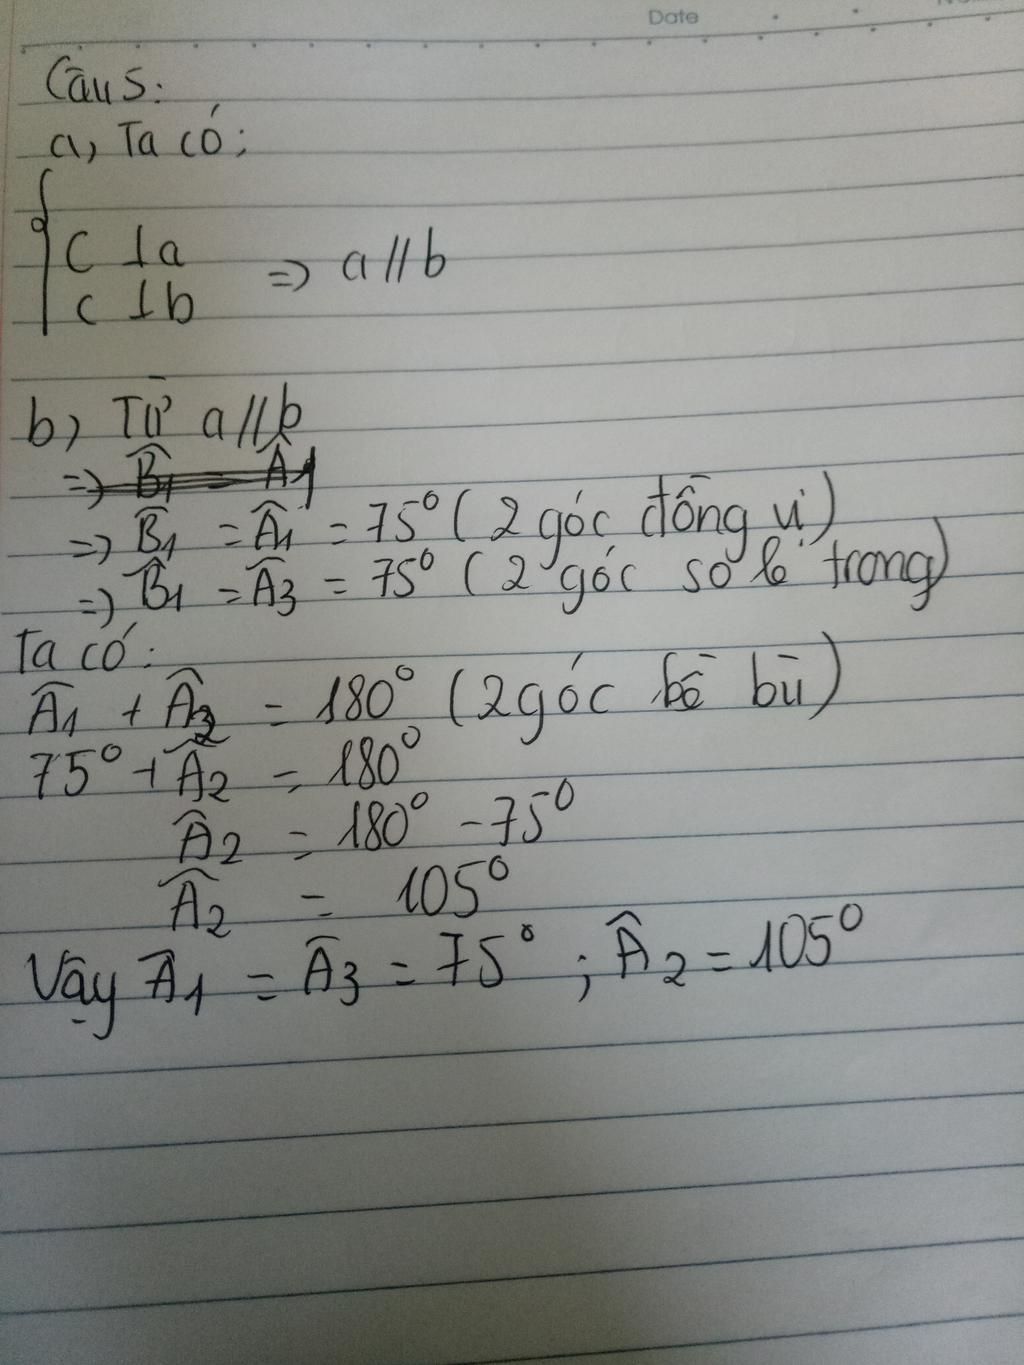 Date
Câu 5:
a, Ta có:
c ⊥ a
=> a // b
c ⊥ b
b) Từ a // b
=> B̂1 = Â1
=> B̂1 = Â1 = 75° (2 góc đồng vị)
=> B̂1 = Â3 = 75° (2 góc so le trong)
Ta có:
Â1 + Â2 = 180° (2 góc kề bù)
75° + Â2 = 180°
Â2 = 180° - 75°
Â2 = 105°
Vậy Â1 = Â3 = 75° ; Â2 = 105°